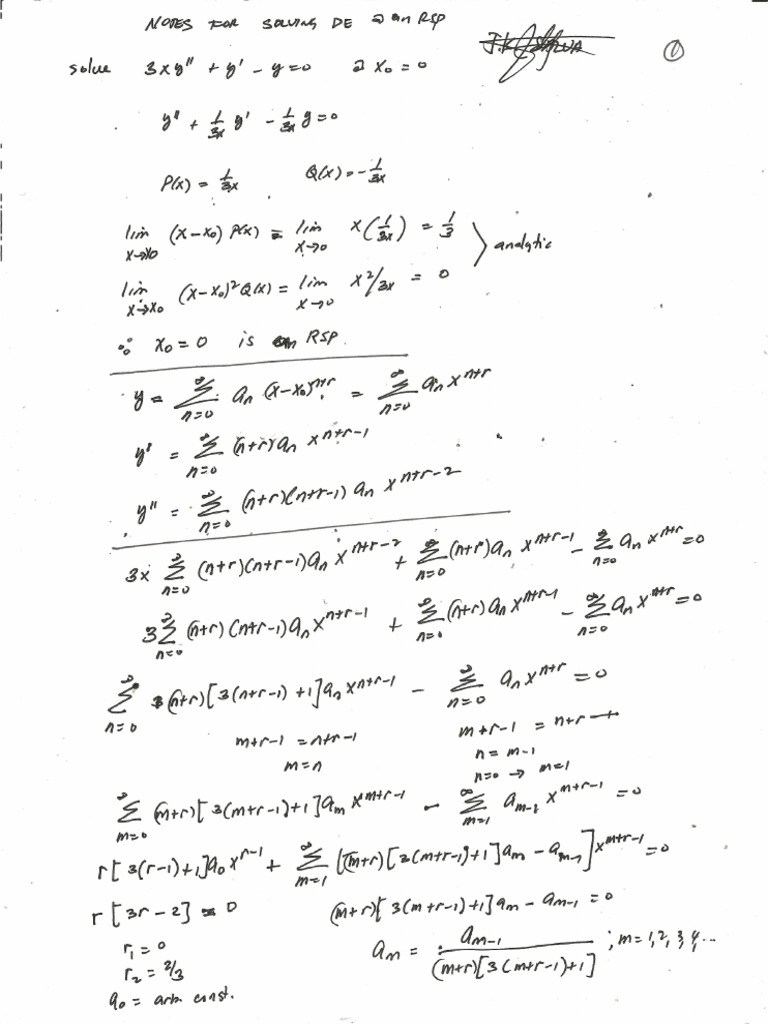 NOTES FOR SOLVING DE @ an RSP
①
solve 3xy" + y' - y = 0 @ x₀ = 0
y" + 1/3x y' - 1/3x y = 0
P(x) = 1/3x Q(x) = -1/3x
lim x→x₀ (x-x₀) P(x) = lim x→0 x(1/3x) = 1/3
lim x→x₀ (x-x₀)² Q(x) = lim x→0 x²/3x = 0
} analytic
∴ x₀ = 0 is an RSP.
y = ∑ n=0 ∞ aₙ (x-x₀)ⁿ⁺ʳ = ∑ n=0 ∞ aₙ xⁿ⁺ʳ
y' = ∑ n=0 ∞ (n+r) aₙ xⁿ⁺ʳ⁻¹
y" = ∑ n=0 ∞ (n+r)(n+r-1) aₙ xⁿ⁺ʳ⁻²
3x ∑ n=0 ∞ (n+r)(n+r-1) aₙ xⁿ⁺ʳ⁻² + ∑ n=0 ∞ (n+r) aₙ xⁿ⁺ʳ⁻¹ - ∑ n=0 ∞ aₙ xⁿ⁺ʳ = 0
3 ∑ n=0 ∞ (n+r)(n+r-1) aₙ xⁿ⁺ʳ⁻¹ + ∑ n=0 ∞ (n+r) aₙ xⁿ⁺ʳ⁻¹ - ∑ n=0 ∞ aₙ xⁿ⁺ʳ = 0
∑ n=0 ∞ (n+r)[3(n+r-1)+1] aₙ xⁿ⁺ʳ⁻¹ - ∑ n=0 ∞ aₙ xⁿ⁺ʳ = 0
m+r-1 = n+r-1 m+r-1 = n+r
m = n n = m-1
n=0 → m=1
∑ m=0 ∞ (m+r)[3(m+r-1)+1] aₘ xᵐ⁺ʳ⁻¹ - ∑ m=1 ∞ aₘ₋₁ xᵐ⁺ʳ⁻¹ = 0
r[3(r-1)+1] a₀ xʳ⁻¹ + ∑ m=1 ∞ [(m+r)[3(m+r-1)+1] aₘ - aₘ₋₁] xᵐ⁺ʳ⁻¹ = 0
r[3r-2] = 0 (m+r)[3(m+r-1)+1] aₘ - aₘ₋₁ = 0
r₁ = 0
r₂ = 2/3
aₘ = aₘ₋₁ / (m+r)[3(m+r-1)+1] ; m = 1, 2, 3, 4, ...
a₀ = arb const.